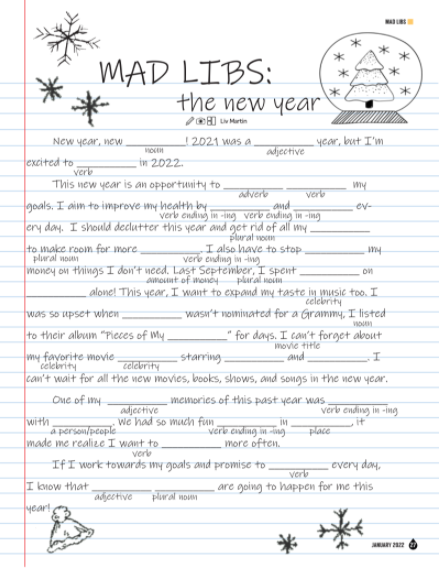 MAD LIBS
MAD LIBS:
the new year
Liv Martin
New year, new __________! 2021 was a __________ year, but I'm
noun adjective
excited to __________ in 2022.
verb
This new year is an opportunity to __________ __________ my
adverb verb
goals. I aim to improve my health by __________ and __________ ev-
verb ending in -ing verb ending in -ing
ery day. I should declutter this year and get rid of all my __________
plural noun
to make room for more __________. I also have to stop __________ my
plural noun verb ending in -ing
money on things I don't need. Last September, I spent __________ on
amount of money plural noun
__________ alone! This year, I want to expand my taste in music too. I
celebrity
was so upset when __________ wasn't nominated for a Grammy, I listed
noun
to their album "Pieces of My __________" for days. I can't forget about
movie title
my favorite movie __________ starring __________ and __________. I
celebrity celebrity
can't wait for all the new movies, books, shows, and songs in the new year.
One of my __________ memories of this past year was __________
adjective verb ending in -ing
with __________. We had so much fun __________ in __________, it
a person/people verb ending in -ing place
made me realize I want to __________ more often.
verb
If I work towards my goals and promise to __________ every day,
verb
I know that __________ __________ are going to happen for me this
adjective plural noun
year!
JANUARY 2022 27